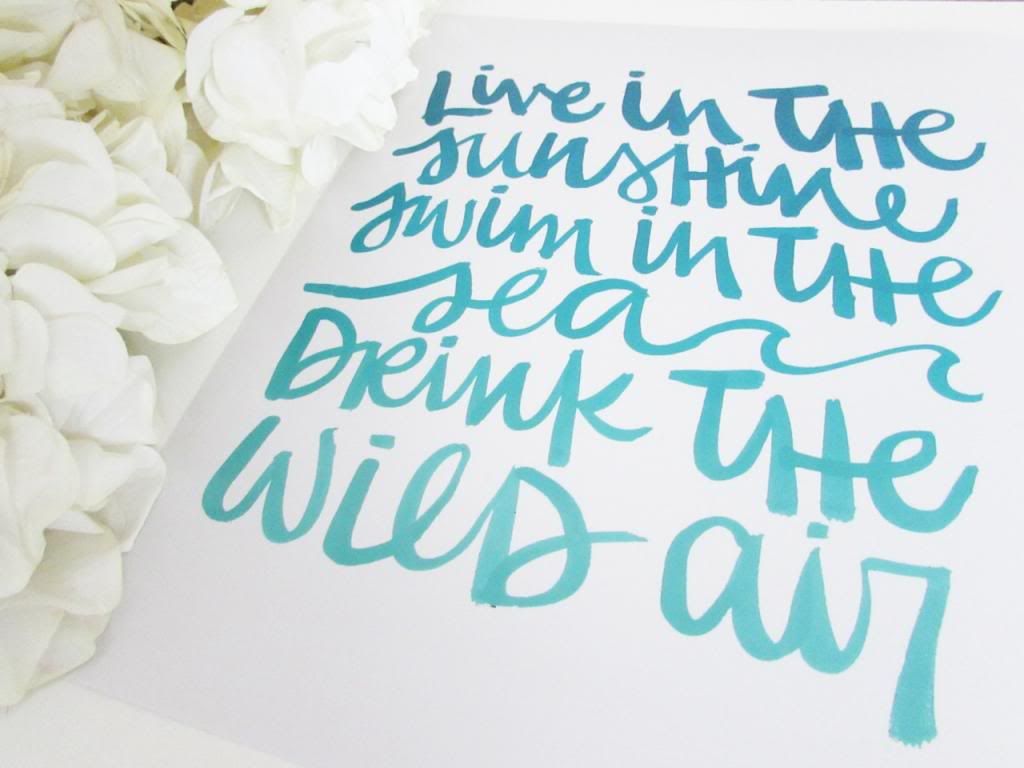 Live in THE
sunsHine
swim in THE
sea
Drink THE
WilD air